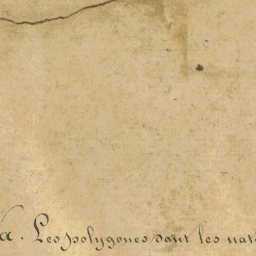 a. Les polygones sont les nat